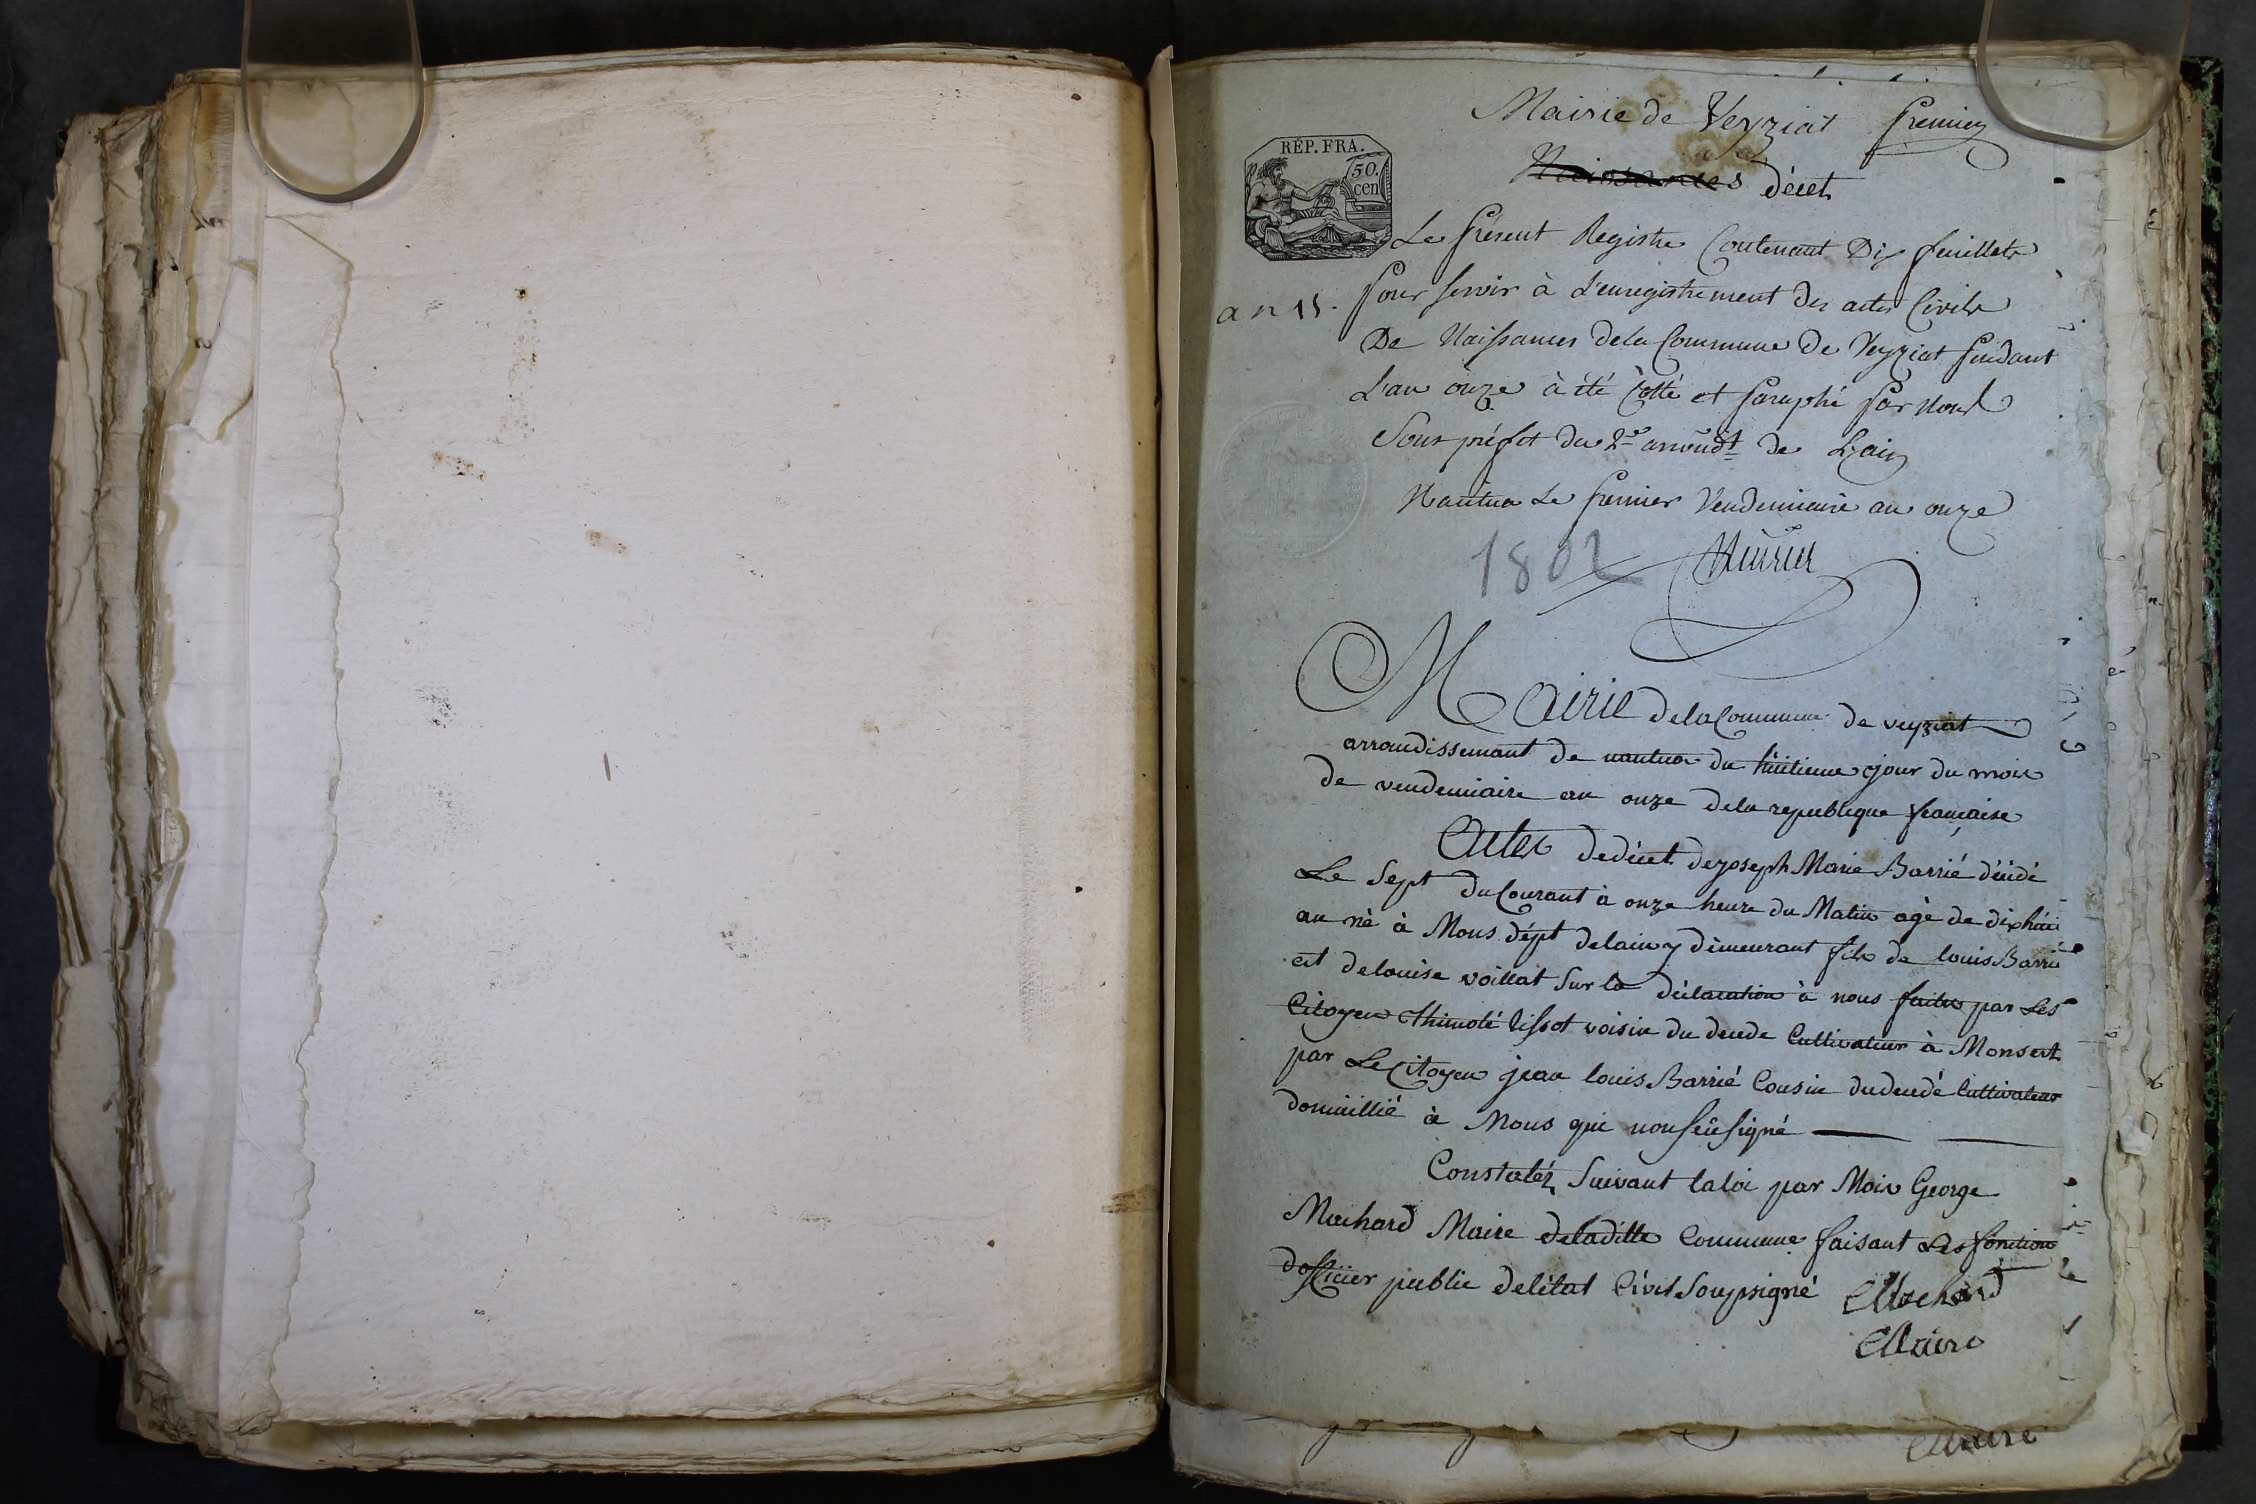 Mairie de Veyziat premier
Naissances décet
RÉP. FRA.
50.
cen
Le présent Registre Contenant Dix feuillets
an 11. pour servir à L'enregistrement des actes Civils
De Naissances dela Commune de Veyziat pendant
L'an onze à été Cotté et paraphé par nous
Sous préfet du 2e arrondt de L'ain
Nantua Le premier Vendemiaire an onze
1802
Mairie dela Commune de veyziat
arrondissemant de nantua du huitieme jour du mois
de vendemiaire an onze dela republique francaise
Actes dedécet dejoseph Marie Barrié décédé
Le Sept du Courant à onze heure du Matin agé de dixhui
an né à Mons dépt delain y démeurant fils de louis Barrié
et delouise voillat Sur la déclaration à nous faite par Les
Citoyen thimoté tissot voisin du decede Cultivateur à Mons et
par Le Citoyen jean louis Barrié Cousin dudecedé Cultivateur
domicillié à Mons qui nonsceusigné
Constatéz Suivant laloi par Moi George
Mochard Maire deladitte Commune faisant Les fonction
dofficier public delétat Civil Soupsigné Mochard
Maire
Maire